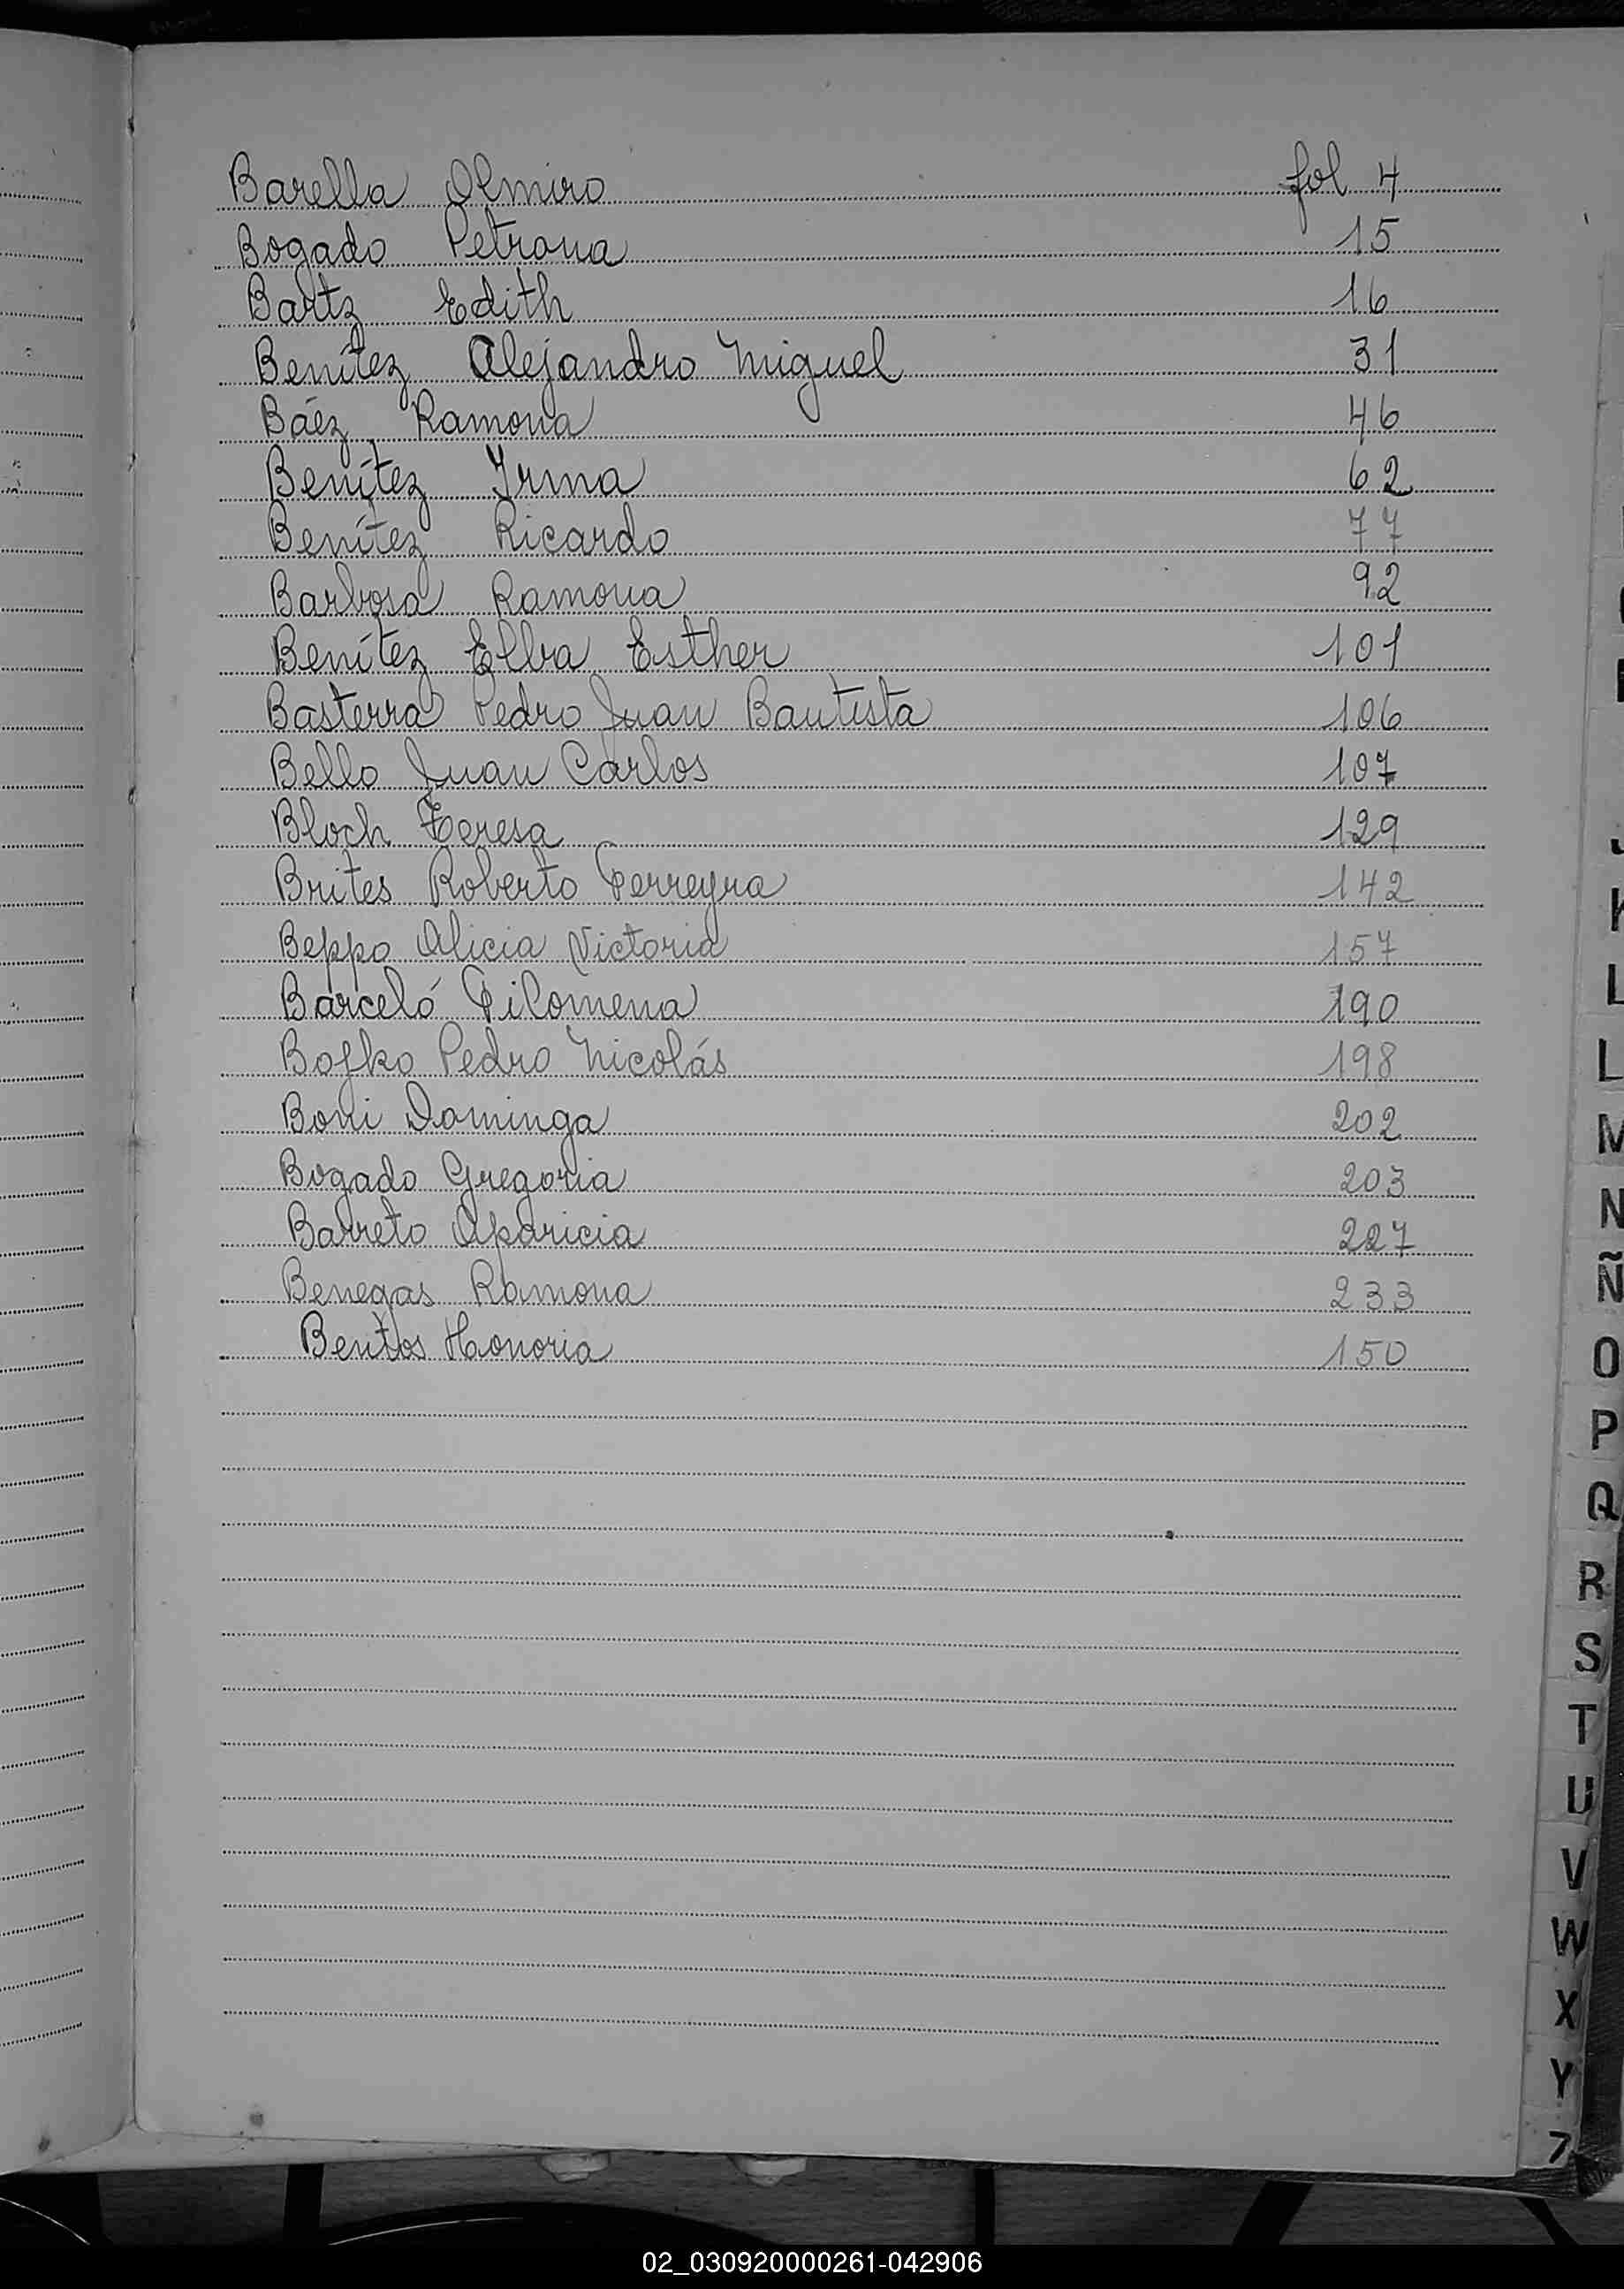 Barella Olmiro fol 4
Bogado Petrona 15
Bartz Edith 16
Benítez Alejandro Miguel 31
Báez Ramona 46
Benítez Irma 62
Benítez Ricardo 77
Barbosa Ramona 92
Benítez Elba Esther 101
Basterra Pedro Juan Bautista 106
Bello Juan Carlos 107
Bloch Teresa 129
Brites Roberto Ferreyra 142
Beppo Alicia Victoria 157
Barceló Filomena 190
Bofko Pedro Nicolás 198
Boni Dominga 202
Bogado Gregoria 203
Barreto Aparicia 227
Benegas Ramona 233
Bentos Honoria 150
J
K
L
L
M
N
Ñ
O
P
Q
R
S
T
U
V
W
X
Y
Z
02_030920000261-042906